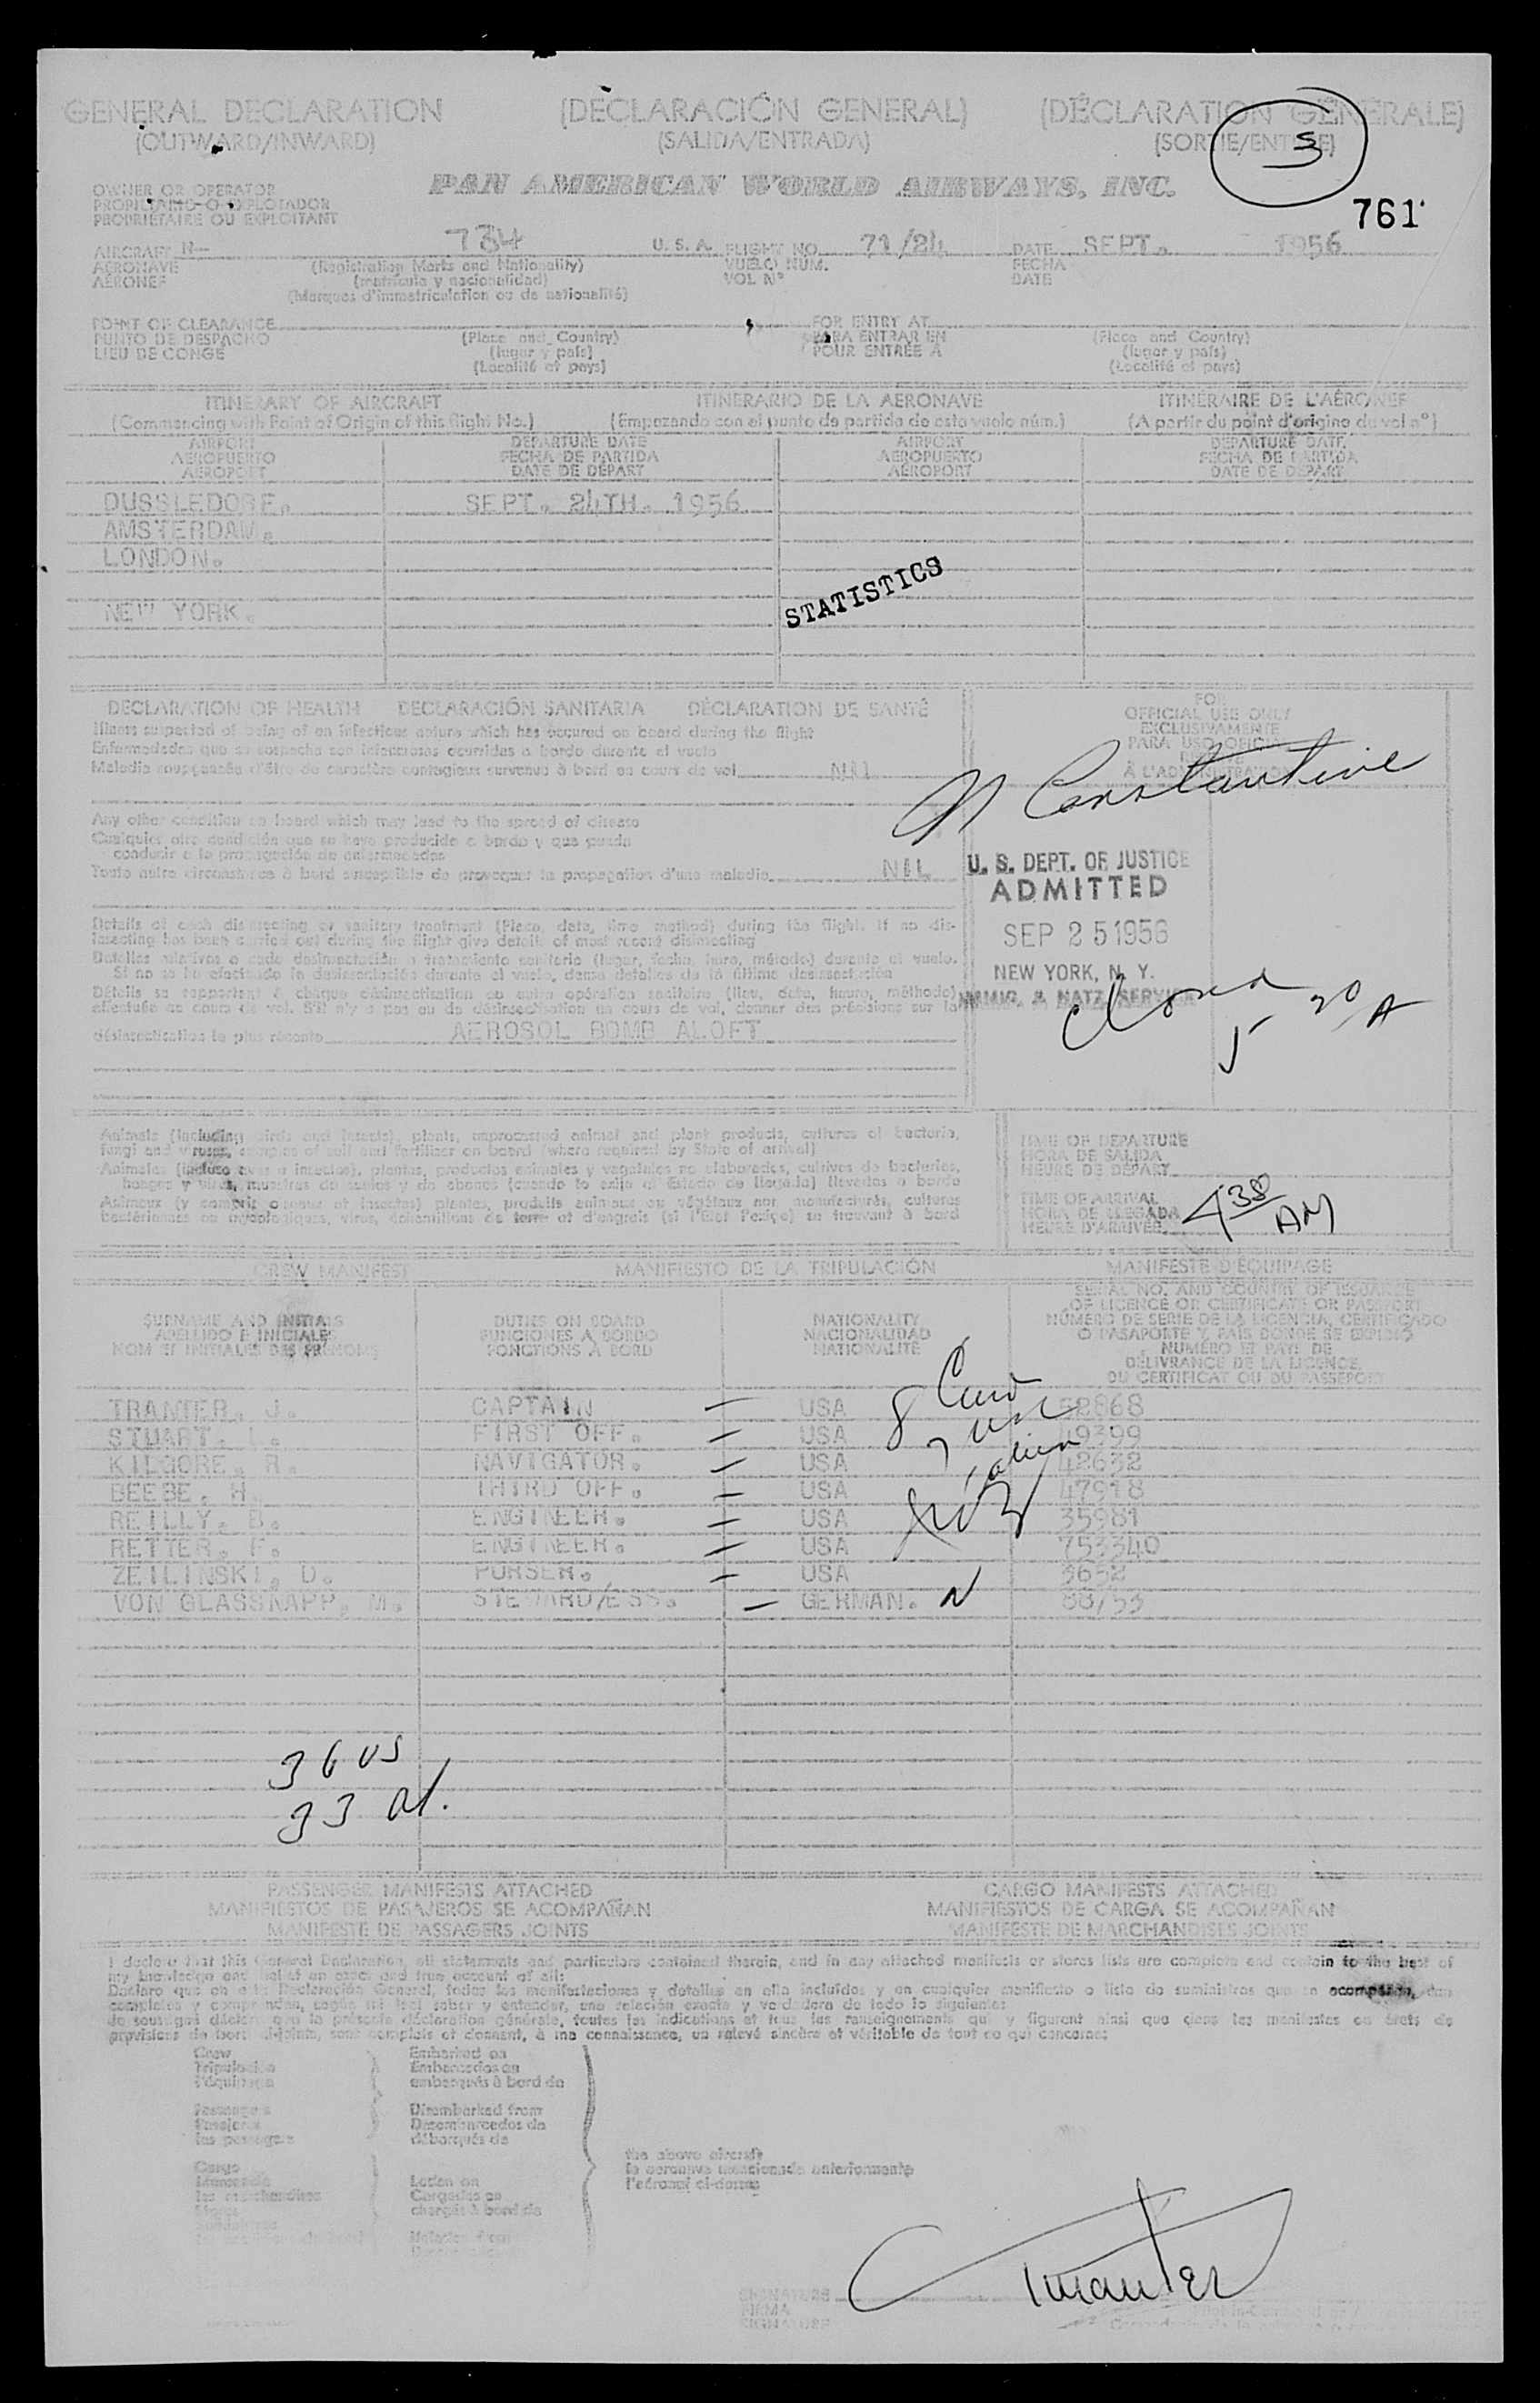 GENERAL DECLARATION (DECLARACIÓN GENERAL) (DÉCLARATION GÉNÉRALE)
(OUTWARD/INWARD) (SALIDA/ENTRADA) (SORTIE/ENTRÉE)
3
OWNER OR OPERATOR PAN AMERICAN WORLD AIRWAYS, INC.
PROPIETARIO O EXPLOTADOR
PROPRIÉTAIRE OU EXPLOITANT
761
AIRCRAFT N— 734 U. S. A. FLIGHT NO. 71/24 DATE SEPT. 1956
AERONAVE (Registration Marks and Nationality) VUELO NÚM. FECHA
AÉRONEF (matrícula y nacionalidad) VOL N° DATE
(Marques d'immatriculation ou de nationalité)
POINT OF CLEARANCE FOR ENTRY AT
PUNTO DE DESPACHO (Place and Country) PARA ENTRAR EN (Place and Country)
LIEU DE CONGÉ (lugar y país) POUR ENTRÉE A (lugar y país)
(Localité et pays) (Localité et pays)
ITINERARY OF AIRCRAFT ITINERARIO DE LA AERONAVE ITINÉRAIRE DE L'AÉRONEF
(Commencing with Point of Origin of this flight No.) (Empezando con el punto de partida de este vuelo núm.) (A partir du point d'origine du vol n°)
AIRPORT DEPARTURE DATE AIRPORT DEPARTURE DATE
AEROPUERTO FECHA DE PARTIDA AEROPUERTO FECHA DE PARTIDA
AÉROPORT DATE DE DÉPART AÉROPORT DATE DE DÉPART
DUSSLEDORF. SEPT. 24TH. 1956
AMSTERDAM.
LONDON.
STATISTICS
NEW YORK.
DECLARATION OF HEALTH DECLARACIÓN SANITARIA DÉCLARATION DE SANTÉ
FOR
OFFICIAL USE ONLY
EXCLUSIVAMENTE
PARA USO OFICIAL
À L'ADMINISTRATION
Illness suspected of being of an infectious nature which has occured on board during the flight
Enfermedades que se sospecha son infecciosas ocurridas a bordo durante el vuelo
Maladie soupçonnée d'être de caractère contagieux survenue à bord au cours de vol NIL
Constantine
Any other condition on board which may lead to the spread of disease
Cualquier otra condición que se haya producido a bordo y que pueda
conducir a la propagación de enfermedades
Toute autre circonstance à bord susceptible de provoquer la propagation d'une maladie NIL
U. S. DEPT. OF JUSTICE
ADMITTED
SEP 25 1956
NEW YORK, N. Y.
IMMIG. & NATZ. SERVICE
Details of each disinsecting or sanitary treatment (Place, date, time method) during the flight. If no dis-
insecting has been carried out during the flight give details of most recent disinsecting
Detalles relativos a cada desinsectación o tratamiento sanitario (lugar, fecha, hora, método) durante el vuelo.
Si no se ha efectuado la desinsectación durante el vuelo, dense detalles de la última desinsectación
Détails se rapportant à chaque désinsectisation ou autre opération sanitaire (lieu, date, heure, méthode)
effectuée au cours de vol. S'il n'y a pas eu de désinsectisation au cours de vol, donner des précisions sur la
désinsectisation la plus récente AEROSOL BOMB ALOFT
5 20 A
Animals (including birds and insects), plants, unprocessed animal and plant products, cultures of bacteria,
fungi and viruses, samples of soil and fertilizer on board (where required by State of arrival)
Animales (incluso aves e insectos), plantas, productos animales y vegetales no elaborados, cultivos de bacterias,
hongos y virus, muestras de suelos y de abonos (cuando lo exija el Estado de llegada) llevados a bordo
Animaux (y compris oiseaux et insectes) plantes, produits animaux ou végétaux non manufacturés, cultures
bactériennes ou mycologiques, virus, échantillons de terre et d'engrais (si l'Etat l'exige) se trouvant à bord
TIME OF DEPARTURE
HORA DE SALIDA
HEURE DE DÉPART
TIME OF ARRIVAL
HORA DE LLEGADA 4 38 AM
HEURE D'ARRIVÉE
CREW MANIFEST MANIFIESTO DE LA TRIPULACIÓN MANIFESTE D'ÉQUIPAGE
SURNAME AND INITIALS DUTIES ON BOARD NATIONALITY SERIAL NO. AND COUNTRY OF ISSUANCE
APELLIDO E INICIALES FUNCIONES A BORDO NACIONALIDAD OF LICENCE OR CERTIFICATE OR PASSPORT
NOM ET INITIALES DES PRÉNOMS FONCTIONS À BORD NATIONALITÉ NÚMERO DE SERIE DE LA LICENCIA, CERTIFICADO
O PASAPORTE Y PAÍS DONDE SE EXPIDIÓ
NUMÉRO ET PAYS DE
DÉLIVRANCE DE LA LICENCE
DU CERTIFICAT OU DU PASSEPORT
8 Crew
7 usc
1 alien
TRANTER. J. CAPTAIN — USA 52868
STUART. FIRST OFF. — USA 49399
KILGORE. R. NAVIGATOR. — USA 42632
BEEBE. H. THIRD OFF. — USA 47918
REILLY. B. ENGINEER. — USA 35981
RETTER. F. ENGINEER. — USA 753340
ZEILINSKI. D. PURSER. — USA 3652
VON GLASSNAPP. M. STEWARD/ESS. — GERMAN. 88753
36 US
33 al.
PASSENGER MANIFESTS ATTACHED CARGO MANIFESTS ATTACHED
MANIFIESTOS DE PASAJEROS SE ACOMPAÑAN MANIFIESTOS DE CARGA SE ACOMPAÑAN
MANIFESTE DE PASSAGERS JOINTS MANIFESTE DE MARCHANDISES JOINTS
I declare that this General Declaration, all statements and particulars contained therein, and in any attached manifests or stores lists are complete and contain to the best of
my knowledge and belief an exact and true account of all:
Declaro que en esta Declaración General, todas las manifestaciones y detalles en ella incluídos y en cualquier manifiesto o lista de suministros que se acompañan, son
completos y comprenden, según mi leal saber y entender, una relación exacta y verdadera de todo lo siguiente:
Je soussigné déclare que la présente déclaration générale, toutes les indications et tous les renseignements qui y figurent ainsi que dans les manifestes ou états de
provisions de bord ci-joints, sont complets et donnent, à ma connaissance, un relevé sincère et véritable de tout ce qui concerne:
Crew Embarked on
Tripulación Embarcados en
l'équipage embarqués à bord de
Passengers Disembarked from
Pasajeros Desembarcados de
les passagers débarqués de
the above aircraft
la aeronave mencionada anteriormente
l'aéronef ci-dessus
Cargo
Mercancía Laden on
les marchandises Cargados en
chargés à bord de
Tranter
SIGNATURE
FIRMA
SIGNATURE